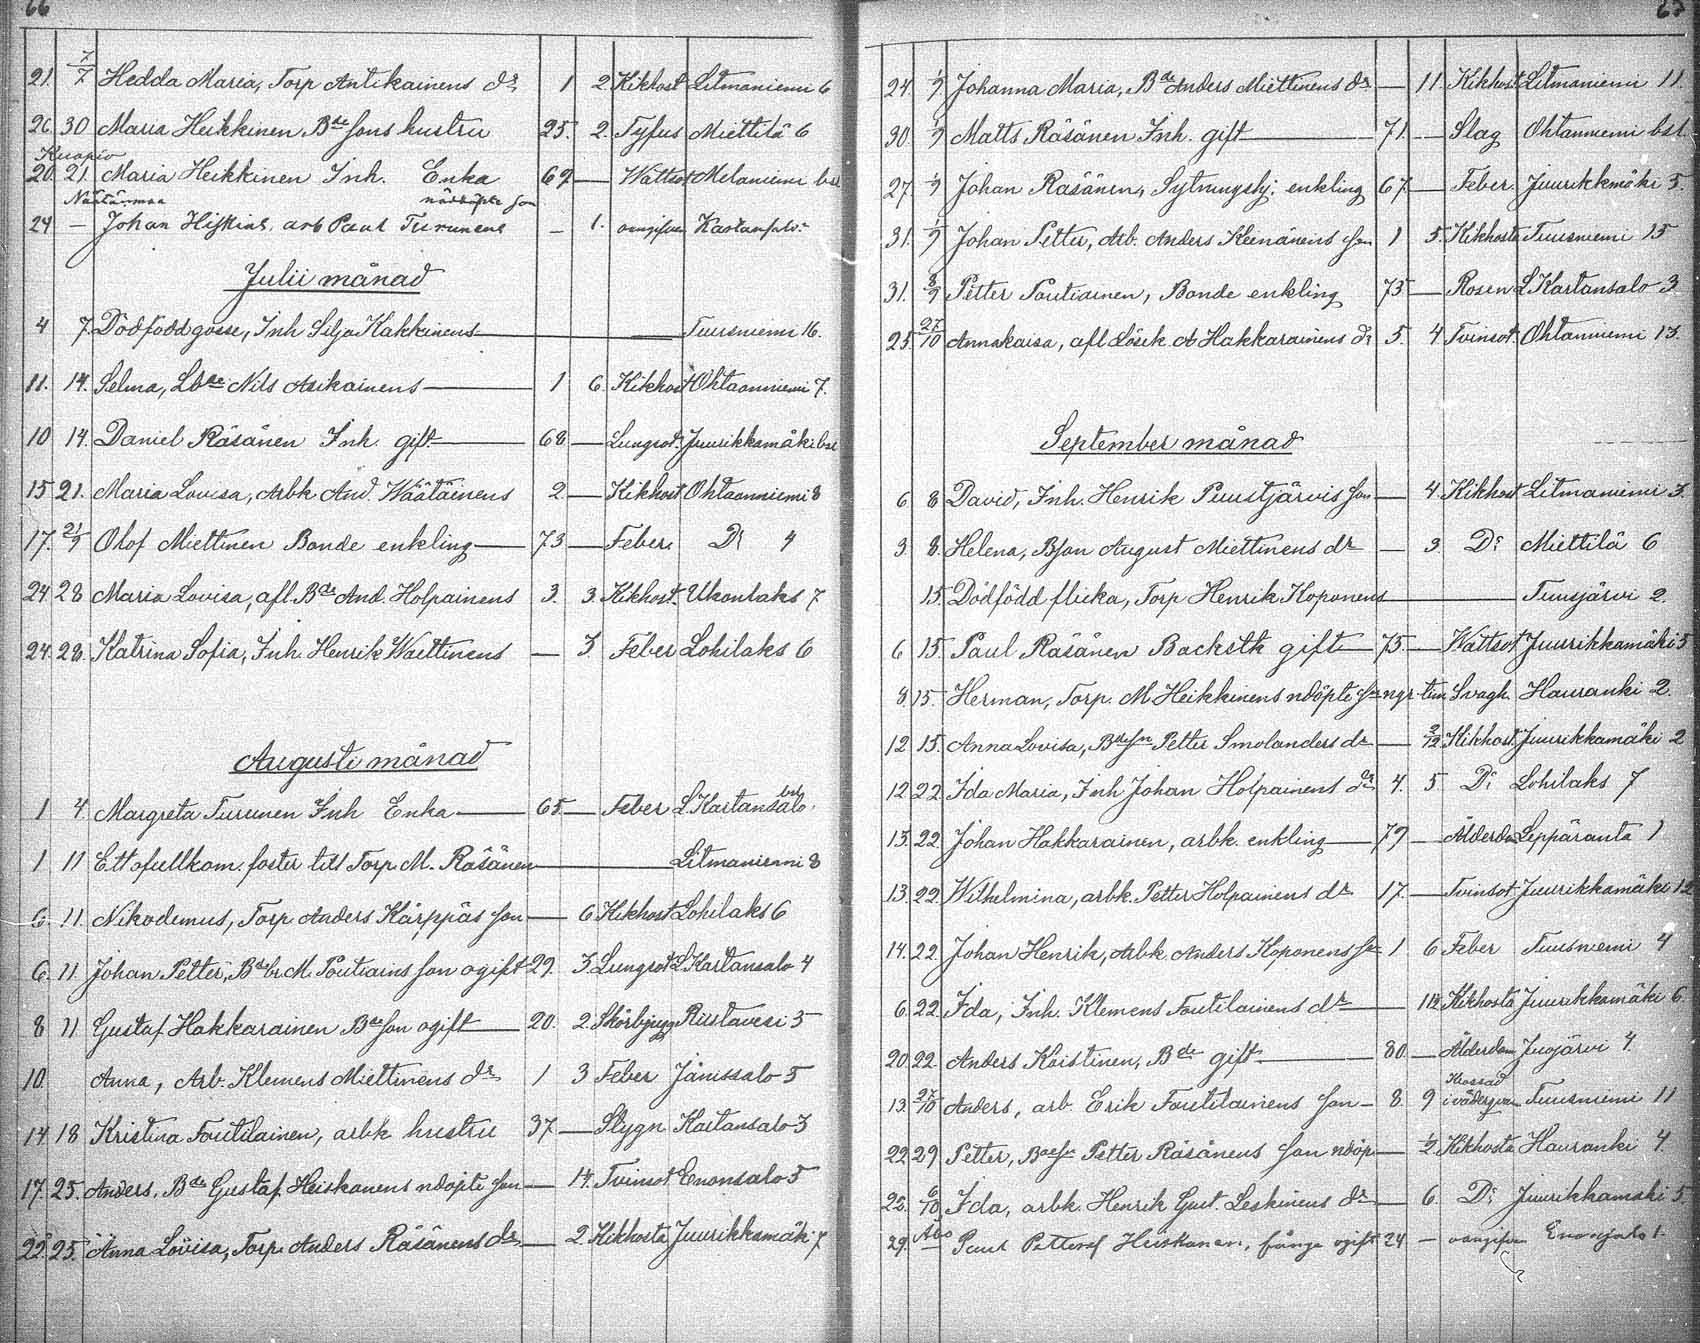 66
21. 7/7 Hedda Maria, Torp Antikainens dr 1 2. Kikhost Litmaniemi 6
26 30 Maria Heikkinen Bde sons hustru 25. 2. Tyfus Miettilä 6
Kuopio
20. 21. Maria Heikkinen Inh. Enka 69 — Wattsot Melaniemi bst
Näätänmaa nöddöpte son
24 — Johan Hiskias, arb Paul Turunens — 1. oangifven Kartansalo
Julii månad
4 7. Dödfödd gosse, Inh Silja Kakkinens — Tuusniemi 16.
11. 14. Selma, Lbde Nils Asikainens — 1 6. Kikhost Ohtaanniemi 7.
10 14. Daniel Räsänen Inh. gift — 68 — Lungsot. Juurikkamäki bst
15 21. Maria Lovisa, Arbk And. Wäätäinens 2 — Kikhost Ohtaanniemi 8
17. 21/9 Olof Miettinen Bonde enkling — 73 — Feber. Do 4
24 28 Maria Lovisa, afl. Bde And. Holpainens 3. 3. Kikhost. Ukonlaks 7
24. 28. Katrina Sofia, Inh. Henrik Waittinens — 3. Feber Lohilaks 6
Augusti månad
1 4. Margreta Turunen Inh Enka — 65 — Feber L Kartansalo bst
1 11 Ett ofullkom. foster till Torp. M. Räsänen — Litmaniemi 8
6. 11. Nikodemus, Torp Anders Kärppäs son — 6 Kikhost Lohilaks 6
6. 11 Johan Petter, Bdebr. M. Poutiains son ogift 29. 3. Lungsot L Kartansalo 4
8 11 Gustaf Hakkarainen Bde son ogift — 20. 2. Skörbjugg Ristavesi 5
10. Anna, Arb. Klemens Miettinens dr 1 3 Feber Jänissalo 5
14 18 Kristina Toutilainen, arbk hustru 37 — Slygn Kartansalo 3
17. 25. Anders, Bde Gustaf Heiskanens ndöpte son — 14. Tvinsot Enonsalo 5
22. 25. Anna Lovisa, Torp. Anders Räsänens dr — 2. Kikhosta Juurikkamäki 7
67
24. 1/9 Johanna Maria, Bde Anders Miettinens dr — 11. Kikhost Litmaniemi 11.
30. 1/9 Matts Räsänen Inh. gift — 71. — Slag Ohtanniemi bst.
27 1/9 Johan Räsänen, Sytningshj. enkling 67. — Feber. Juurikkmäki 5.
31. 1/9 Johan Petter, Arb. Anders Keinänens son 1 5. Kikhosta Tuusniemi 15
31. 8/9 Petter Poutiainen, Bonde enkling 75 — Rosen L Kartansalo 3
25. 27/10 Annakaisa, afl Lösk. A Hakkarainens dr 5. 4 Tvinsot. Ohtanniemi 13.
September månad
6 8 David, Inh. Henrik Puustjärvis son — 4 Kikhost Litmaniemi 3.
3. 8. Helena, Bson August Miettinens dr — 3. Do Miettilä 6
15. Dödfödd flicka, Torp Henrik Koponens — Tuusjärvi 2.
6 15. Paul Räsänen Backstk gift — 75 — Wattsot Juurikkamäki 5
8. 15. Herman, Torp. M Heikkinens ndöpte son ngr tim Svagh. Hauranki 2.
12 15. Anna Lovisa, Bdesn Petter Smolanders dr — 2/12 Kikhost. Juurikkamäki 2
12 22. Ida Maria, Inh Johan Holpainens dr 4. 5 Do Lohilaks 7
13. 22. Johan Hakkarainen, arbk. enkling — 79 — Ålderdom Leppäranta 1
13. 22. Wilhelmina, arbk. Petter Holpainens dr 17. — Tvinsot Juurikkamäki 12
14. 22. Johan Henrik, Arbk Anders Koponens sn 1 6 Feber Tuusniemi 4
6. 22. Ida, Inh. Klemens Toutilainens dr — 1½ Kikhosta Juurikkamäki 6.
20. 22. Anders Koistinen, Bde gift — 80 — Ålderdom Juojärvi 4.
Krossad
13. 27/10 Anders, arb. Erik Toutilainens son — 8. 9 i väderqvarn Tuusniemi 11
22. 29 Petter, Bdesn Petter Räsänens son ndöp — ½ Kikhosta Hauranki 4.
22. 6/10 Ida, arbk. Henrik Gust. Leskinens dr — 6. Do Juurikkamäki 5.
Åbo
29. — Paul Pettersf Heiskanen, fånge ogift 24 — oangifven Enonsalo 1.